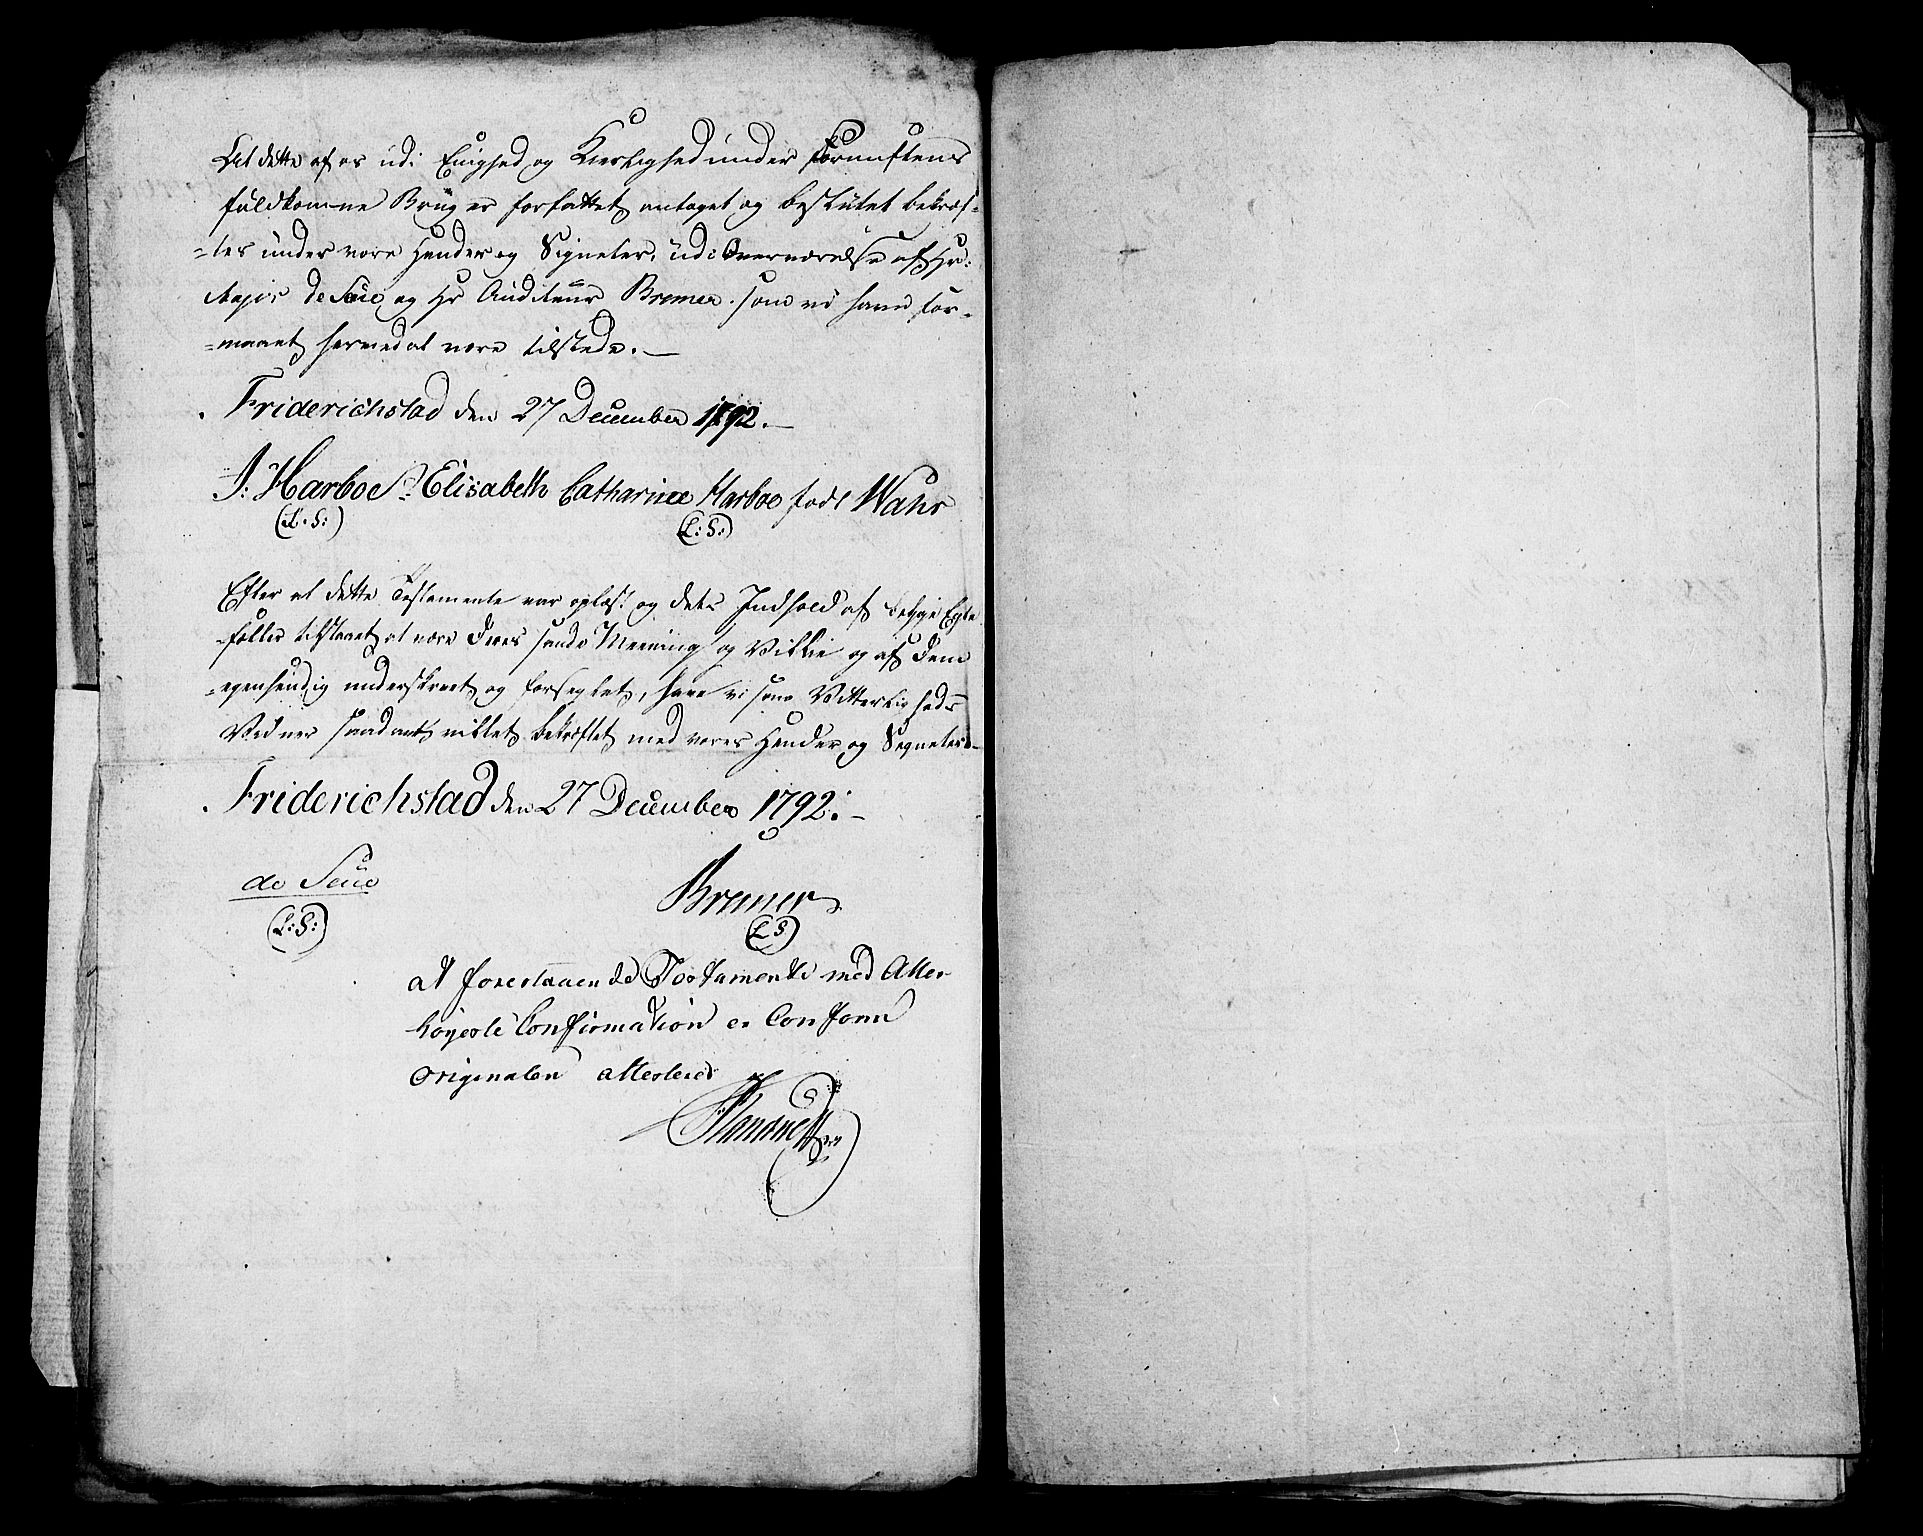 At dette af os udi Enighed og Kierlighed under Fornuftens
fuldkomne Brug er forfattet antaget og besluttet bekræf-
-tes under vore Hænder og Signeter, udi Overværelse af Hr:
Major de Seüe og Hr Auditeur Bremer som vi have for-
-maaet hermed at være tilstede.
Friderichstad den 27 December 1792.
J: Harboe Elisabeth Catharina Harboe født Wahr
(L.S:) (L:S:)
Efter at dette Testamente var oplæst og dets Indhold af begge Egte
-fæller tilstaaet at være deres sande Meening og Villie og af dem
-egenhendig underskrevet og forseglet, have vi som Vitterligheds
Vidner saadant villet bekræftet med vores Hænder og Signeter.
Friderichstad den 27 December 1792.
de Seüe Bremer
(L:S:) (L S)
at forestaaende Testamente med Aller
høyeste Confirmation er Conform
Originalen attesterer